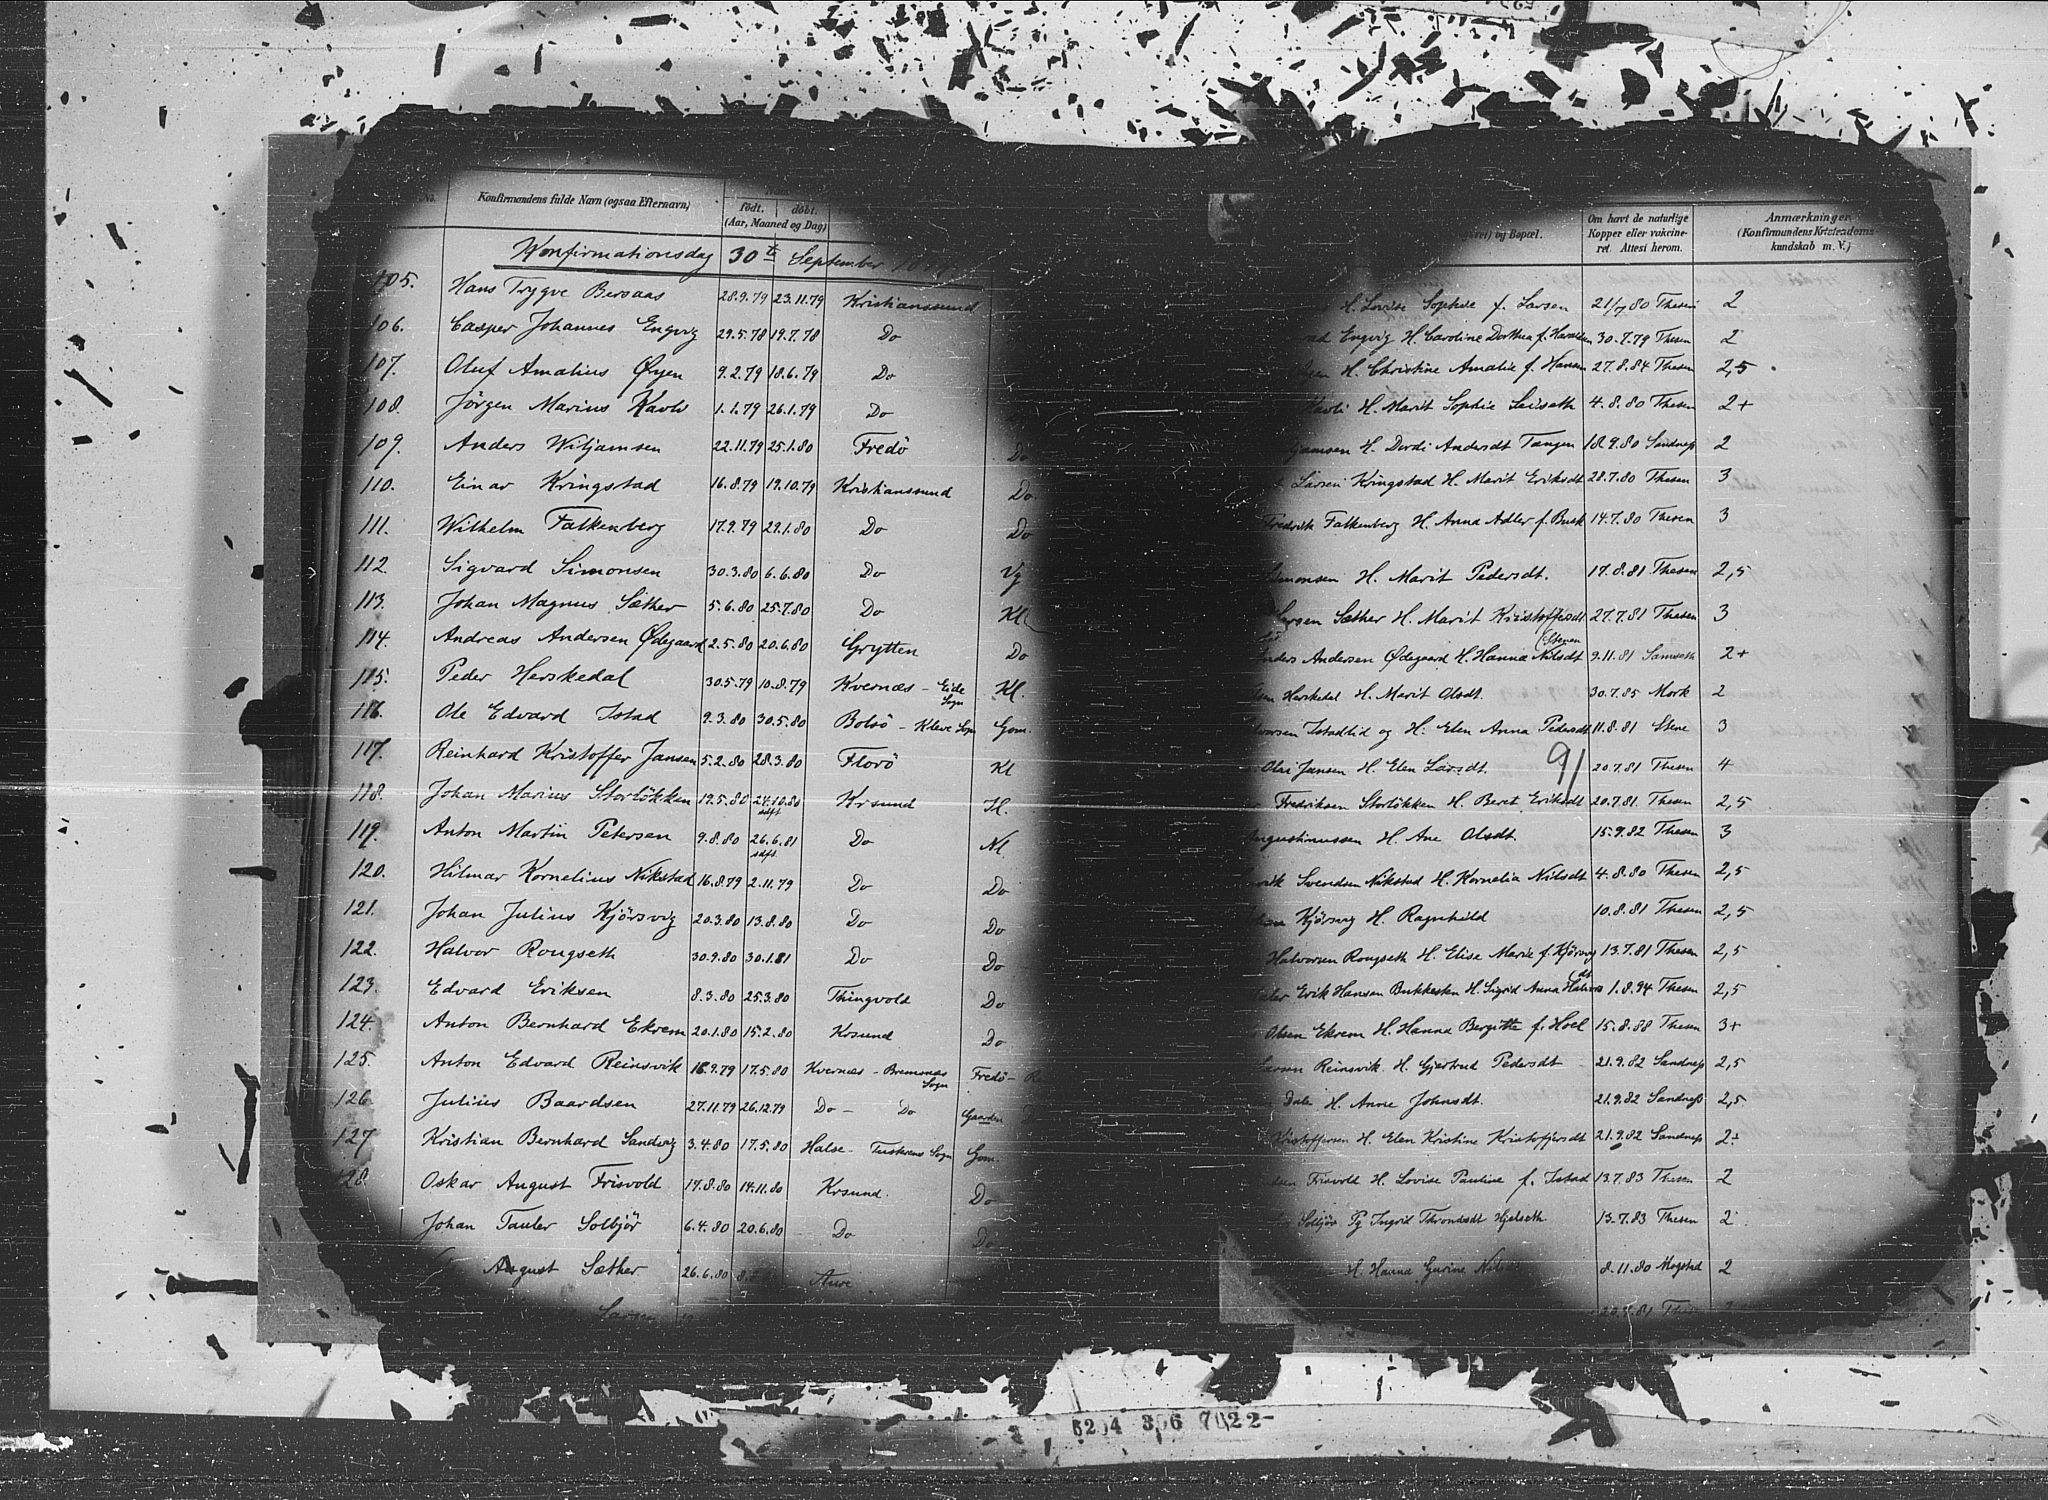 No. Konfirmandens fulde Navn (ogsaa Efternavn) født. døbt. (Aar, Maaned og Dag) og Bopæl. Om havt de naturlige Kopper eller vakcineret. Attest herom. Anmærkninger (Konfirmandens Kristendomskundskab m. V.)
Konfirmationsdag 30te September
105. Hans Trygve Bersaas 28.9.79 23.11.79 Kristianssund H. Lovise Sophie f. Larsen 21/7 80 Thesen 2
106. Casper Johannes Engvig 29.5.78 19.7.78 Do Engvig H. Caroline Dorthea f. 30.7.79 Thesen 2
107. Oluf Amalius Øyen 9.2.79 18.6.79 Do H. Christine Amalie f. Hansen 27.8.84 Thesen 2,5
108. Jörgen Marius Kavli 1.1.79 26.1.79 Do Kavli H. Marit Sophie 4.8.80 Thesen 2+
109. Anders Wiljamsen 22.11.79 25.1.80 Fredö Do H. Dordi Andersdt Tangen 18.9.80 Sandness 2
110. Einar Kringstad 16.8.79 19.10.79 Kristianssund Do Larsen Kringstad H. Marit Eriksdt 28.7.80 Thesen 3
111. Wilhelm Falkenberg 17.9.79 29.1.80 Do Do Fredrik Falkenberg H. Anna Adler f. Busk 14.7.80 Thesen 3
112. Sigvard Simonsen 30.3.80 6.6.80 Do Vg Simonsen H. Marit Pedersdt. 17.8.81 Thesen 2,5
113. Johan Magnus Sæther 5.6.80 25.7.80 Do Kl. Larsen Sæther H. Marit Kristoffersdt 27.7.81 Thesen 3
114. Andreas Andersen Ødegaard 2.5.80 20.6.80 Grytten Do Anders Andersen Ødegaard H. Hanna Nilsdt Stenen 9.11.81 2+
115. Peder Herskedal 30.5.79 10.8.79 Kvernæs - Eide Sogn Kl. Herskedal H. Marit Olsdt. 30.7.85 Mork 2
116. Ole Edvard Istad 9.3.80 30.5.80 Bolsö - Kleve Sogn Gom. Istadlid og H. Elen Anna Pedersdt 11.8.81 Stene 3
117. Reinhard Kristoffer Jansen 5.2.80 28.3.80 Florö Kl Jansen H. Elen Larsdt. 91 20.7.81 Thesen 4
118. Johan Marius Storlökken 19.5.80 24.10.80 sdft Krsund Fredriksen Storlökken H. Beret Eriksdt 20.7.81. Thesen 2,5
119. Anton Martin Petersen 9.8.80 26.6.81 sdft. Do Nl. Augustinussen H. Ane Olsdt. 15.9.82 Thesen 3
120. Hilmar Kornelius Nikstad 16.8.79 2.11.79 Do Do Svendsen Nikstad H. Kornelia Nilsdt 4.8.80 Thesen 2,5
121. Johan Julius Kjörsvig 20.3.80 13.8.80 Do Do Kjörsvig H. Ragnhild 10.8.81 Thesen 2,5
122. Halvor Rongseth 30.9.80 30.1.81 Do Do Halvorsen Rongseth H. Elise Marie f. Kjörsvig 13.7.81 Thesen 2,5
123. Edvard Eriksen 8.3.80 25.3.80 Thingvold Do Erik Hansen H. Sigrid Anna 1.8.94 Thesen 2,5
124. Anton Bernhard Ekrem 20.1.80 15.2.80 Krsund Do Olsen Ekrem H. Hanna Bergitte f. Hoel 15.8.88 Thesen 3+
125. Anton Edvard Reinsvik 16.9.79 17.5.80 Kvernæs - Bremsnæs Sogn Fredö Larsen Reinsvik H. Gjertrud Pedersdt 21.9.82 Sandness 2,5
126 Julius Baardsen 27.11.79 26.12.79 Do - Do Gaarden Dale H. Anne Johnsdt. 21.9.82 Sandness 2,5
127 Kristian Bernhard Sandvig 3.4.80 17.5.80 Halse - Sogn Gom. Kristoffersen H. Elen Kristine Kristoffersdt 21.9.82 Sandness 2+
128. Oskar August Frisvold 17.8.80 14.11.80 Krsund. Do Frisvold H. Lovise Pauline f. Istad 13.7.83 Thesen 2
Johan Tauler Solbjör 6.4.80 20.6.80 Do Do Solbjör Pg Ingrid Throndsdt Hjelseth 13.7.83 Thesen 2
August Sæther 26.6.80 Aure H. Hanna Gurine 8.11.80 Mogstad 2
Larsen
6204 306 7022